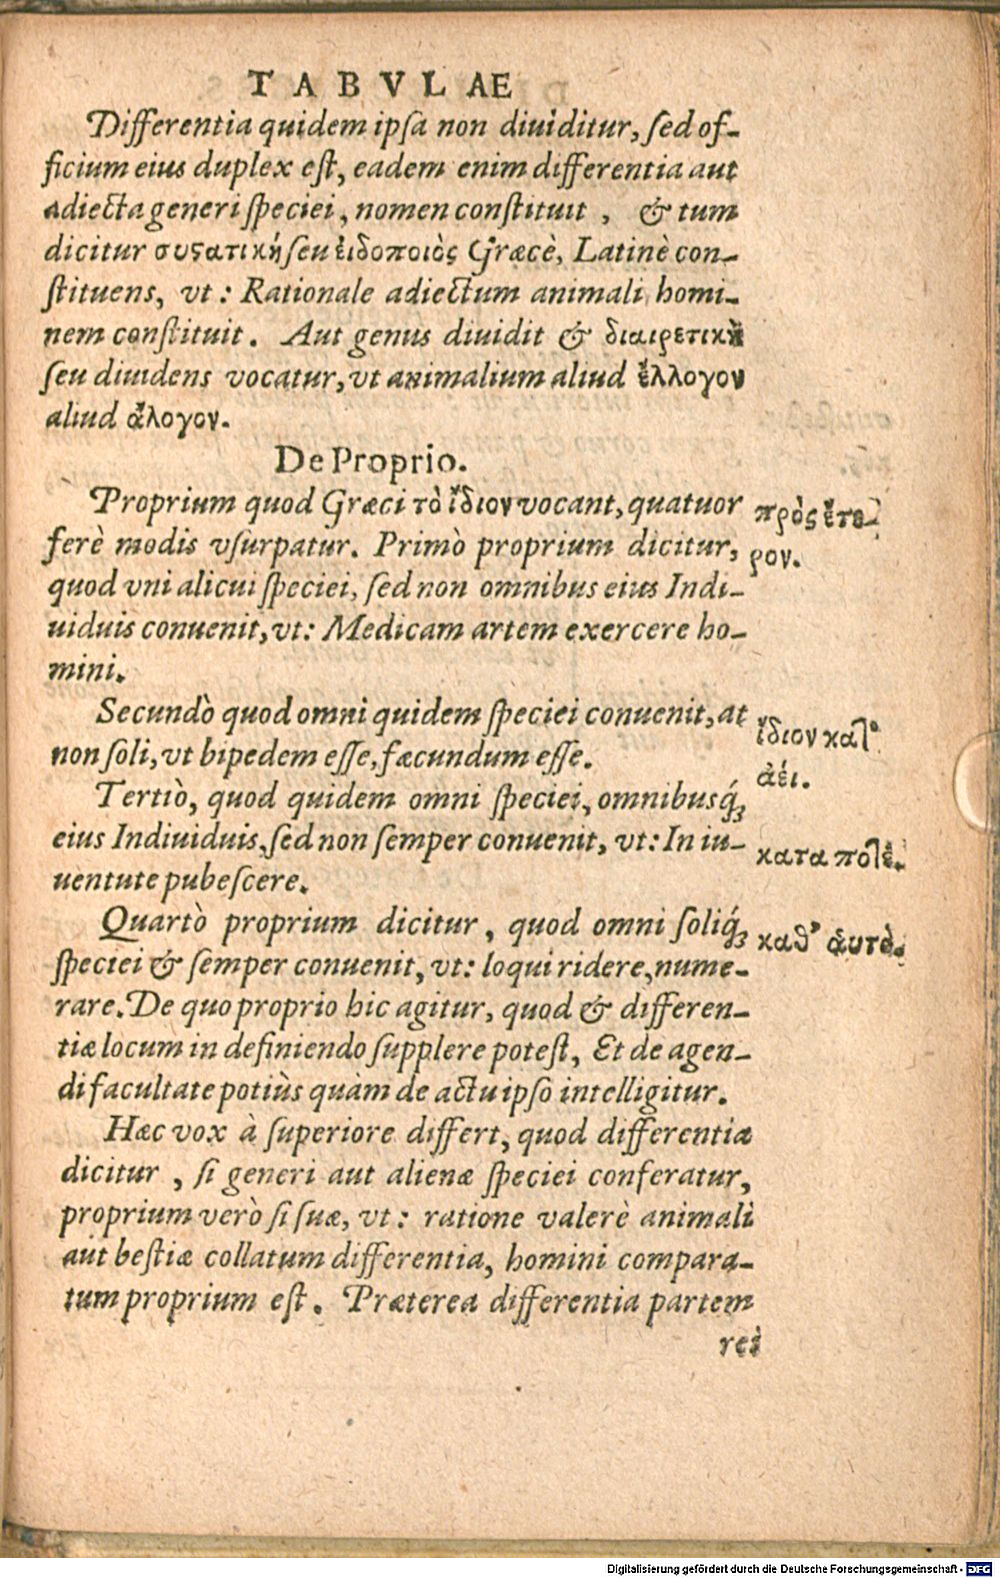 TABVLAE
Differentia quidem ipſa non diuiditur, ſed of-
ficium eius duplex eſt, eadem enim differentia aut
adiecta generi ſpeciei, nomen conſtituit, & tum
dicitur συϛατική ſeu εἰδοποιὸς Græcè, Latinè con-
ſtituens, vt: Rationale adiectum animali homi-
nem conſtituit. Aut genus diuidit & διαιρετικὴ
ſeu diuidens vocatur, vt animalium aliud ἔλλογον
aliud ἄλογον.
De Proprio.
Proprium quod Græci τὸ ἴδιον vocant, quatuor
ferè modis vſurpatur. Primò proprium dicitur,
quod vni alicui ſpeciei, ſed non omnibus eius Indi-
uiduis conuenit, vt: Medicam artem exercere ho-
mini.
πρὸς ἕτε-
ρον.
Secundò quod omni quidem ſpeciei conuenit, at
non ſoli, vt bipedem eſſe, fæcundum eſſe.
ἴδιον κατ'
ἀεί.
Tertiò, quod quidem omni ſpeciei, omnibusq́;
eius Indiuiduis, ſed non ſemper conuenit, vt: In iu-
uentute pubeſcere.
κατα ποτέ.
Quartò proprium dicitur, quod omni ſoliq́;
ſpeciei & ſemper conuenit, vt: loqui ridere, nume-
rare. De quo proprio hic agitur, quod & differen-
tiæ locum in definiendo ſupplere poteſt, Et de agen-
di facultate potiùs quàm de actu ipſo intelligitur.
καθ' ἁυτὸ.
Hæc vox à ſuperiore differt, quod differentia
dicitur, ſi generi aut alienæ ſpeciei conferatur,
proprium verò ſi ſuæ, vt: ratione valerè animali
aut beſtiæ collatum differentia, homini compara-
tum proprium eſt. Præterea differentia partem
rei
Digitalisierung gefördert durch die Deutsche Forschungsgemeinschaft - DFG